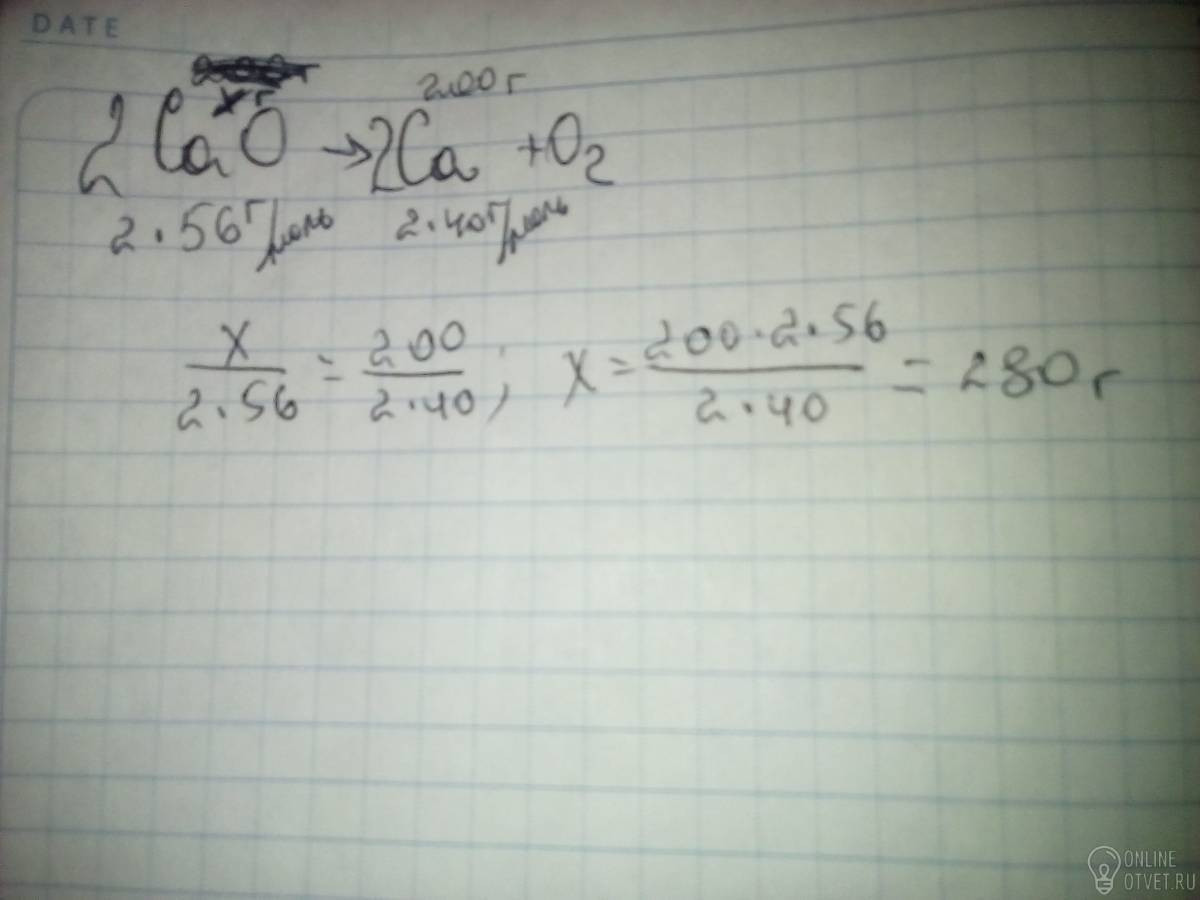 DATE
x г 200 г
2CaO → 2Ca + O2
2·56 г/моль 2·40 г/моль
x/2·56 = 200/2·40; x = 200·2·56/2·40 = 280 г
ONLINE
OTVET.RU